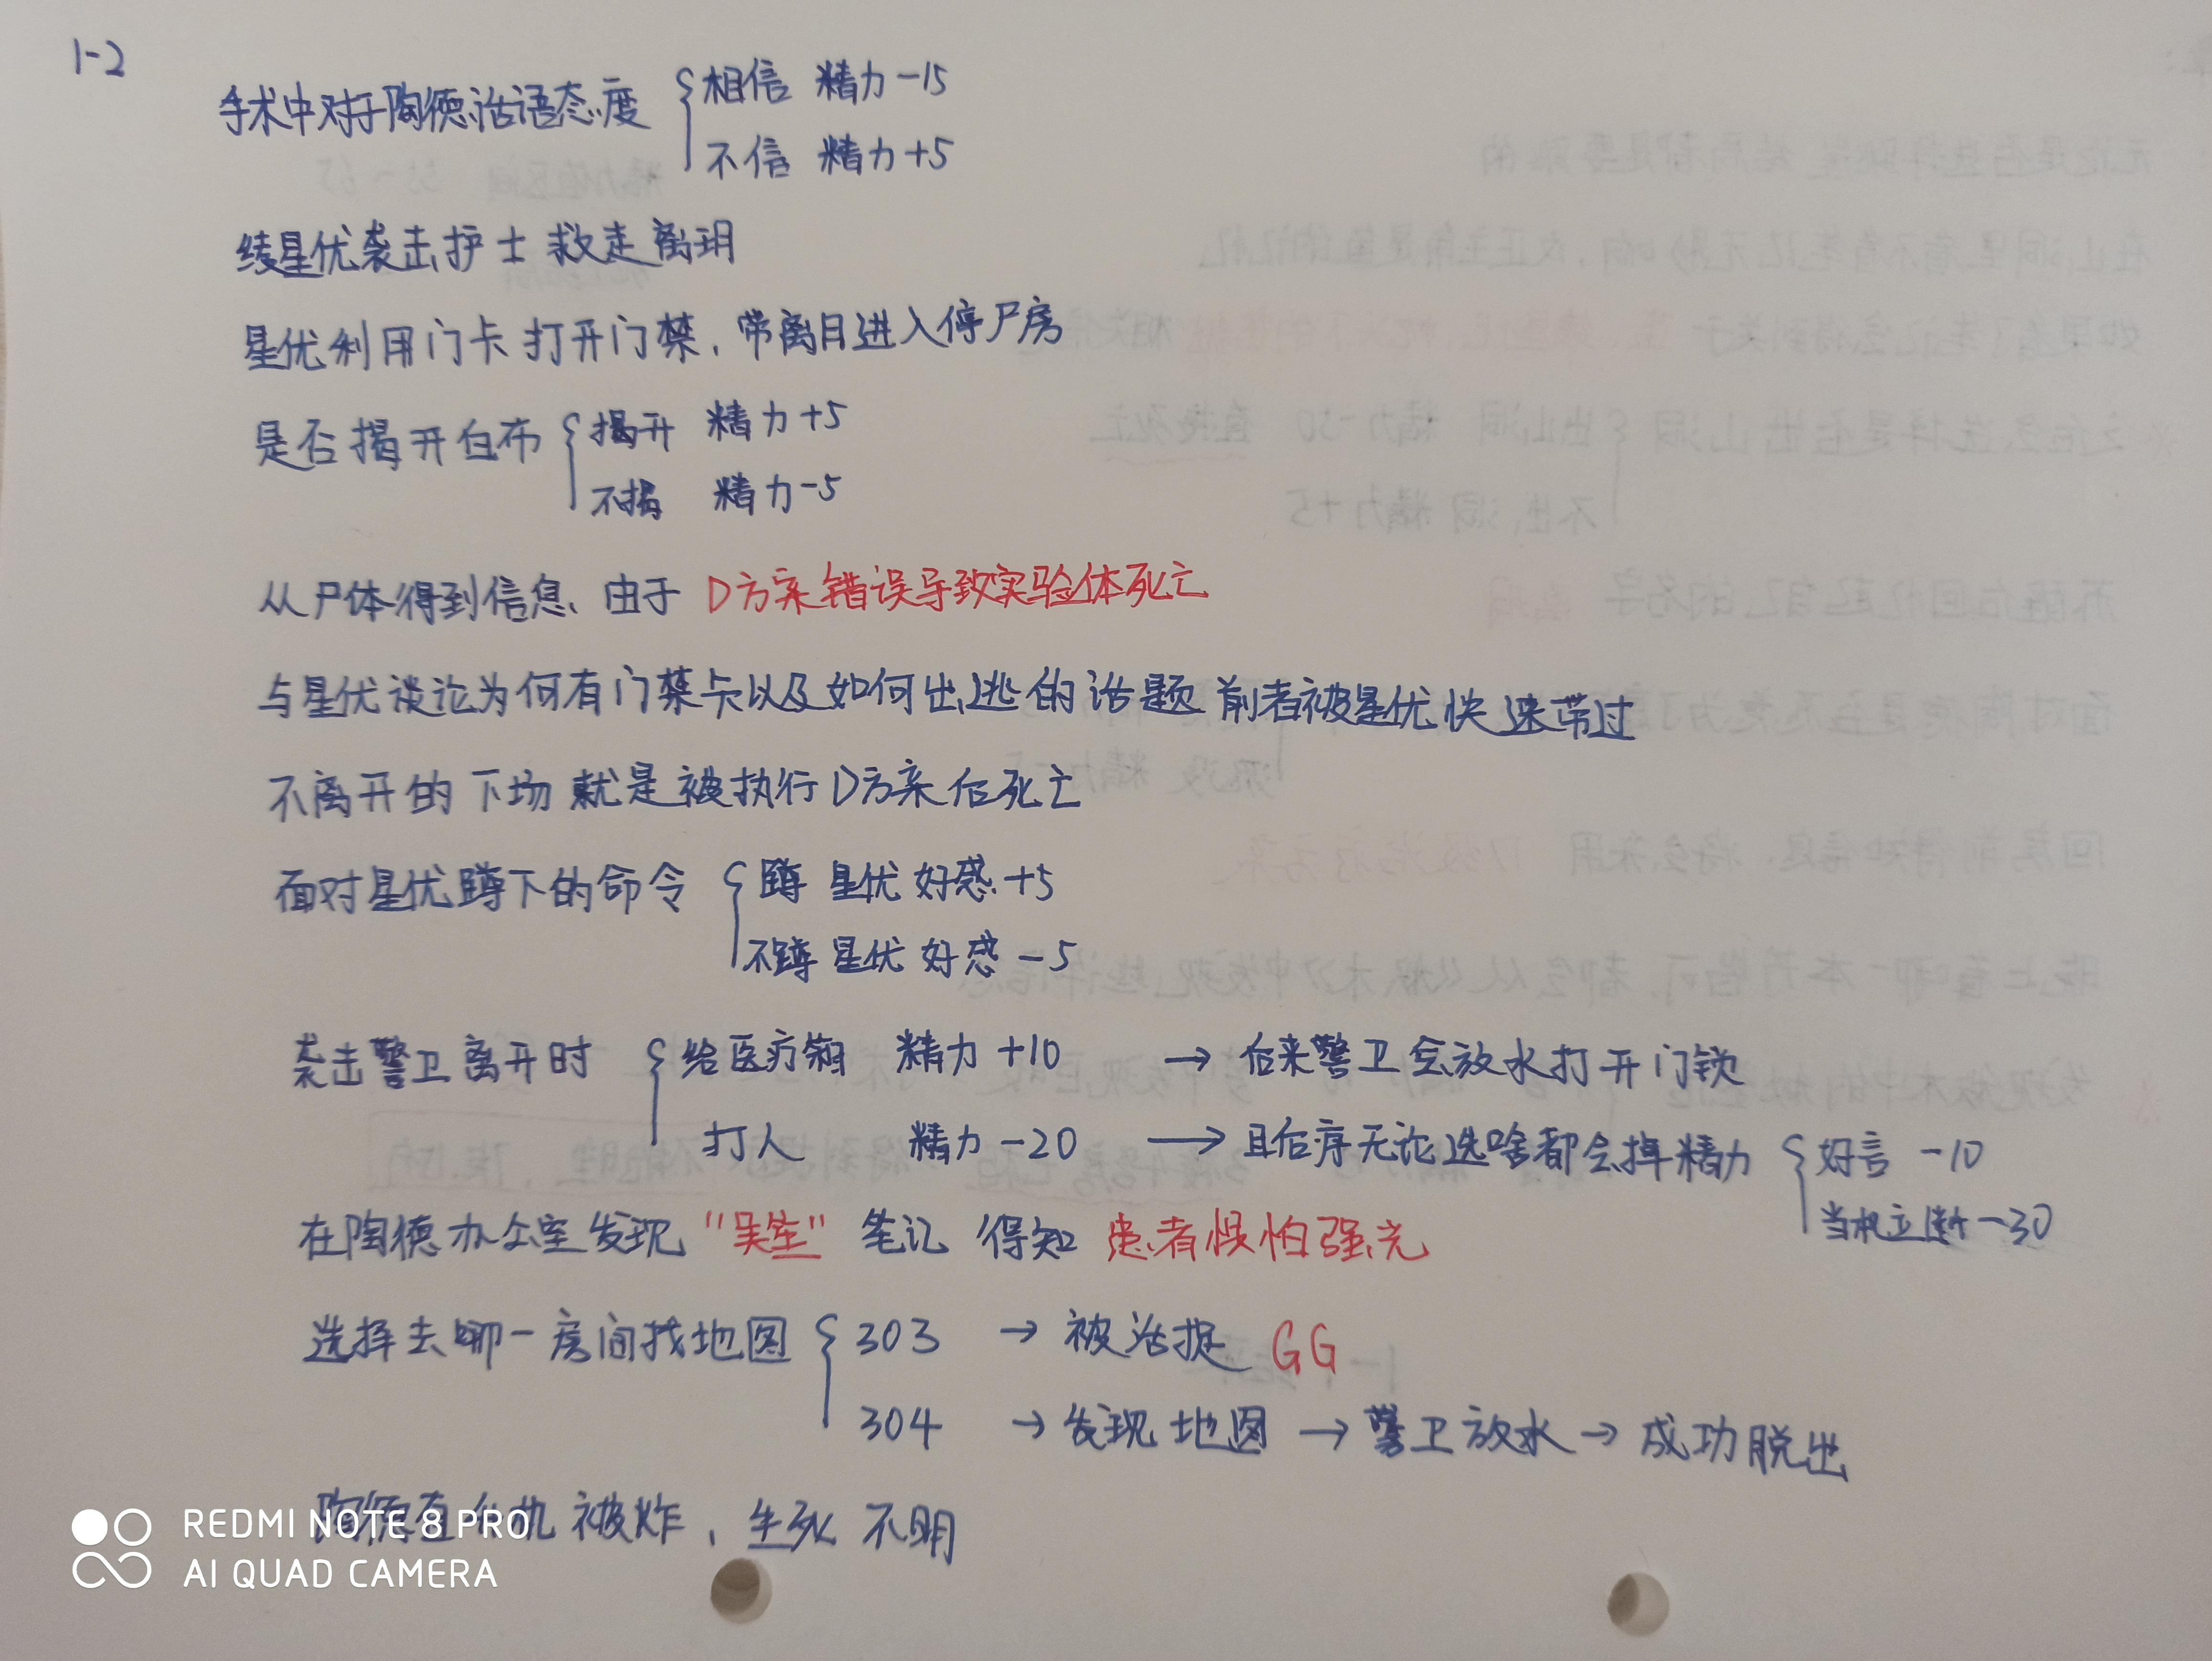 1-2
手术中对于陶德话语态度 { 相信 精力-15
不信 精力+5
绫星优袭击护士 救走离玥
星优利用门卡打开门禁，带离月进入停尸房
是否揭开白布 { 揭开 精力+5
不揭 精力-5
从尸体得到信息、由于 D方案错误导致实验体死亡
与星优谈论为何有门禁卡以及如何出逃的话题 前者被星优快速带过
不离开的下场就是被执行D方案后死亡
面对星优蹲下的命令 { 蹲 星优 好感+5
不蹲 星优 好感-5
袭击警卫离开时 { 给医疗箱 精力+10 → 后来警卫会放水打开门锁
打人 精力-20 → 且后序无论选啥都会掉精力 { 好言 -10
当机立断 -30
在陶德办公室发现 "吴笙" 笔记 得知 患者惧怕强光
选择去哪一房间找地图 { 303 → 被活捉 GG
304 → 发现地图 → 警卫放水 → 成功脱出
陶德直 机被炸，生死不明
REDMI NOTE 8 PRO
AI QUAD CAMERA